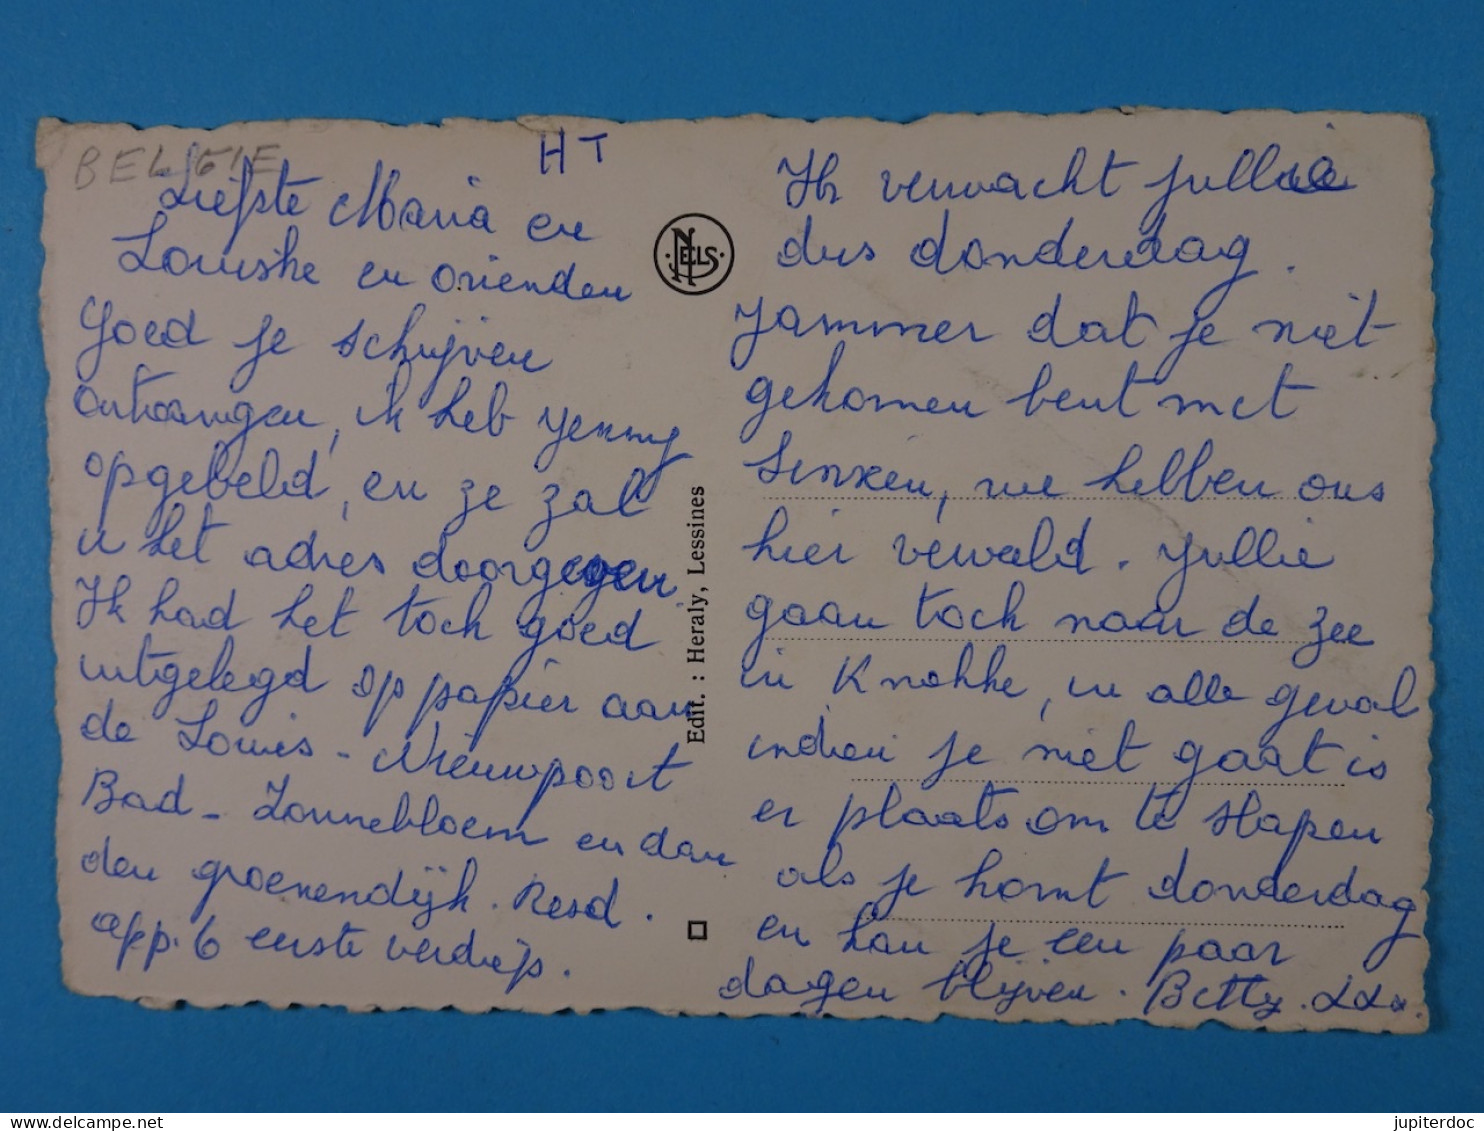 BELGIE
HT
Liefste Maria en
Louiske en vrienden
Goed je schrijven
ontvangen, ik heb Jenny
opgebeld, en ze zal
u het adres doorgegeven
Ik had het toch goed
uitgelegd op papier aan
de Louis - Nieuwpoort
Bad - Zonnebloem en dan
den groenendijk. Resd.
app. 6 eerste verdiep.
NELS
Edit. : Heraly, Lessines
Ik verwacht jullie
dus donderdag.
Jammer dat je niet
gekomen bent met
Sinxen, we hebben ons
hier verwald. Jullie
gaan toch naar de zee
in Knokke, in alle geval
indien je niet gaat is
er plaats om te slapen
als je komt donderdag
en kan je een paar
dagen blijven. Betty.
jupiterdoc